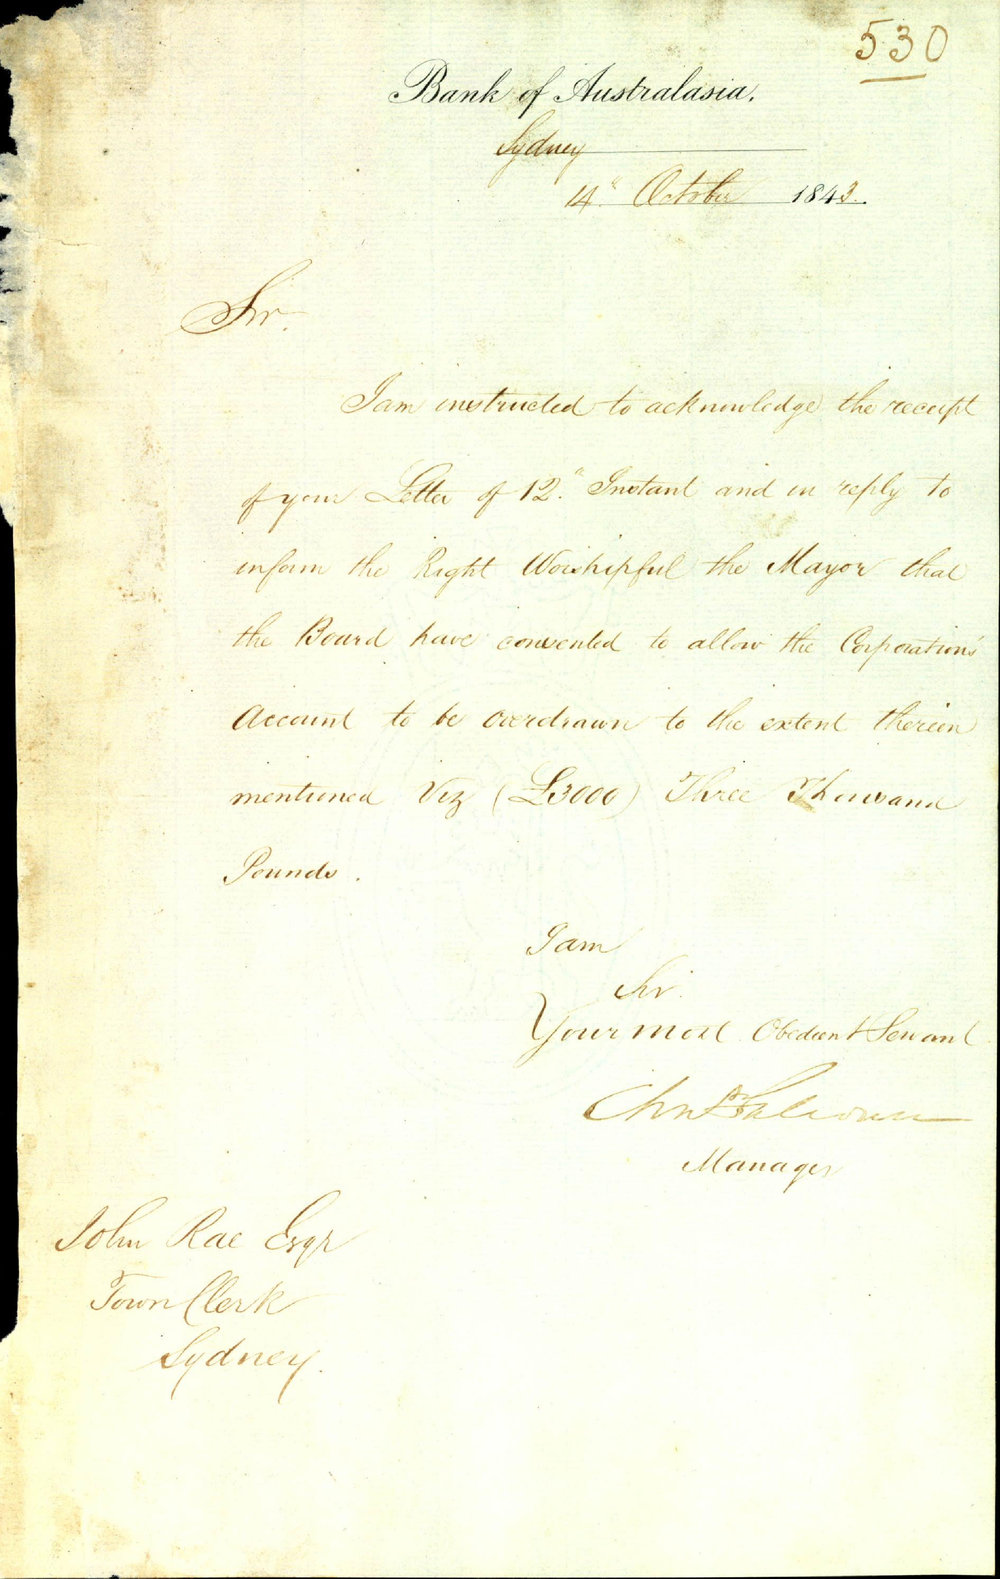 530
Bank of Australasia.
Sydney
14" October 1843.
Sir.
I am instructed to acknowledge the receipt
of your Letter of 12." Instant and in reply to
inform the Right Worshipful the Mayor that
the Board have consented to allow the Corporation's
Account to be overdrawn to the extent therein
mentioned Viz (£3000) Three Thousand
Pounds.
I am
Sir.
Your most Obedient Servant
Manager
John Rae Esqr
Town Clerk
Sydney.